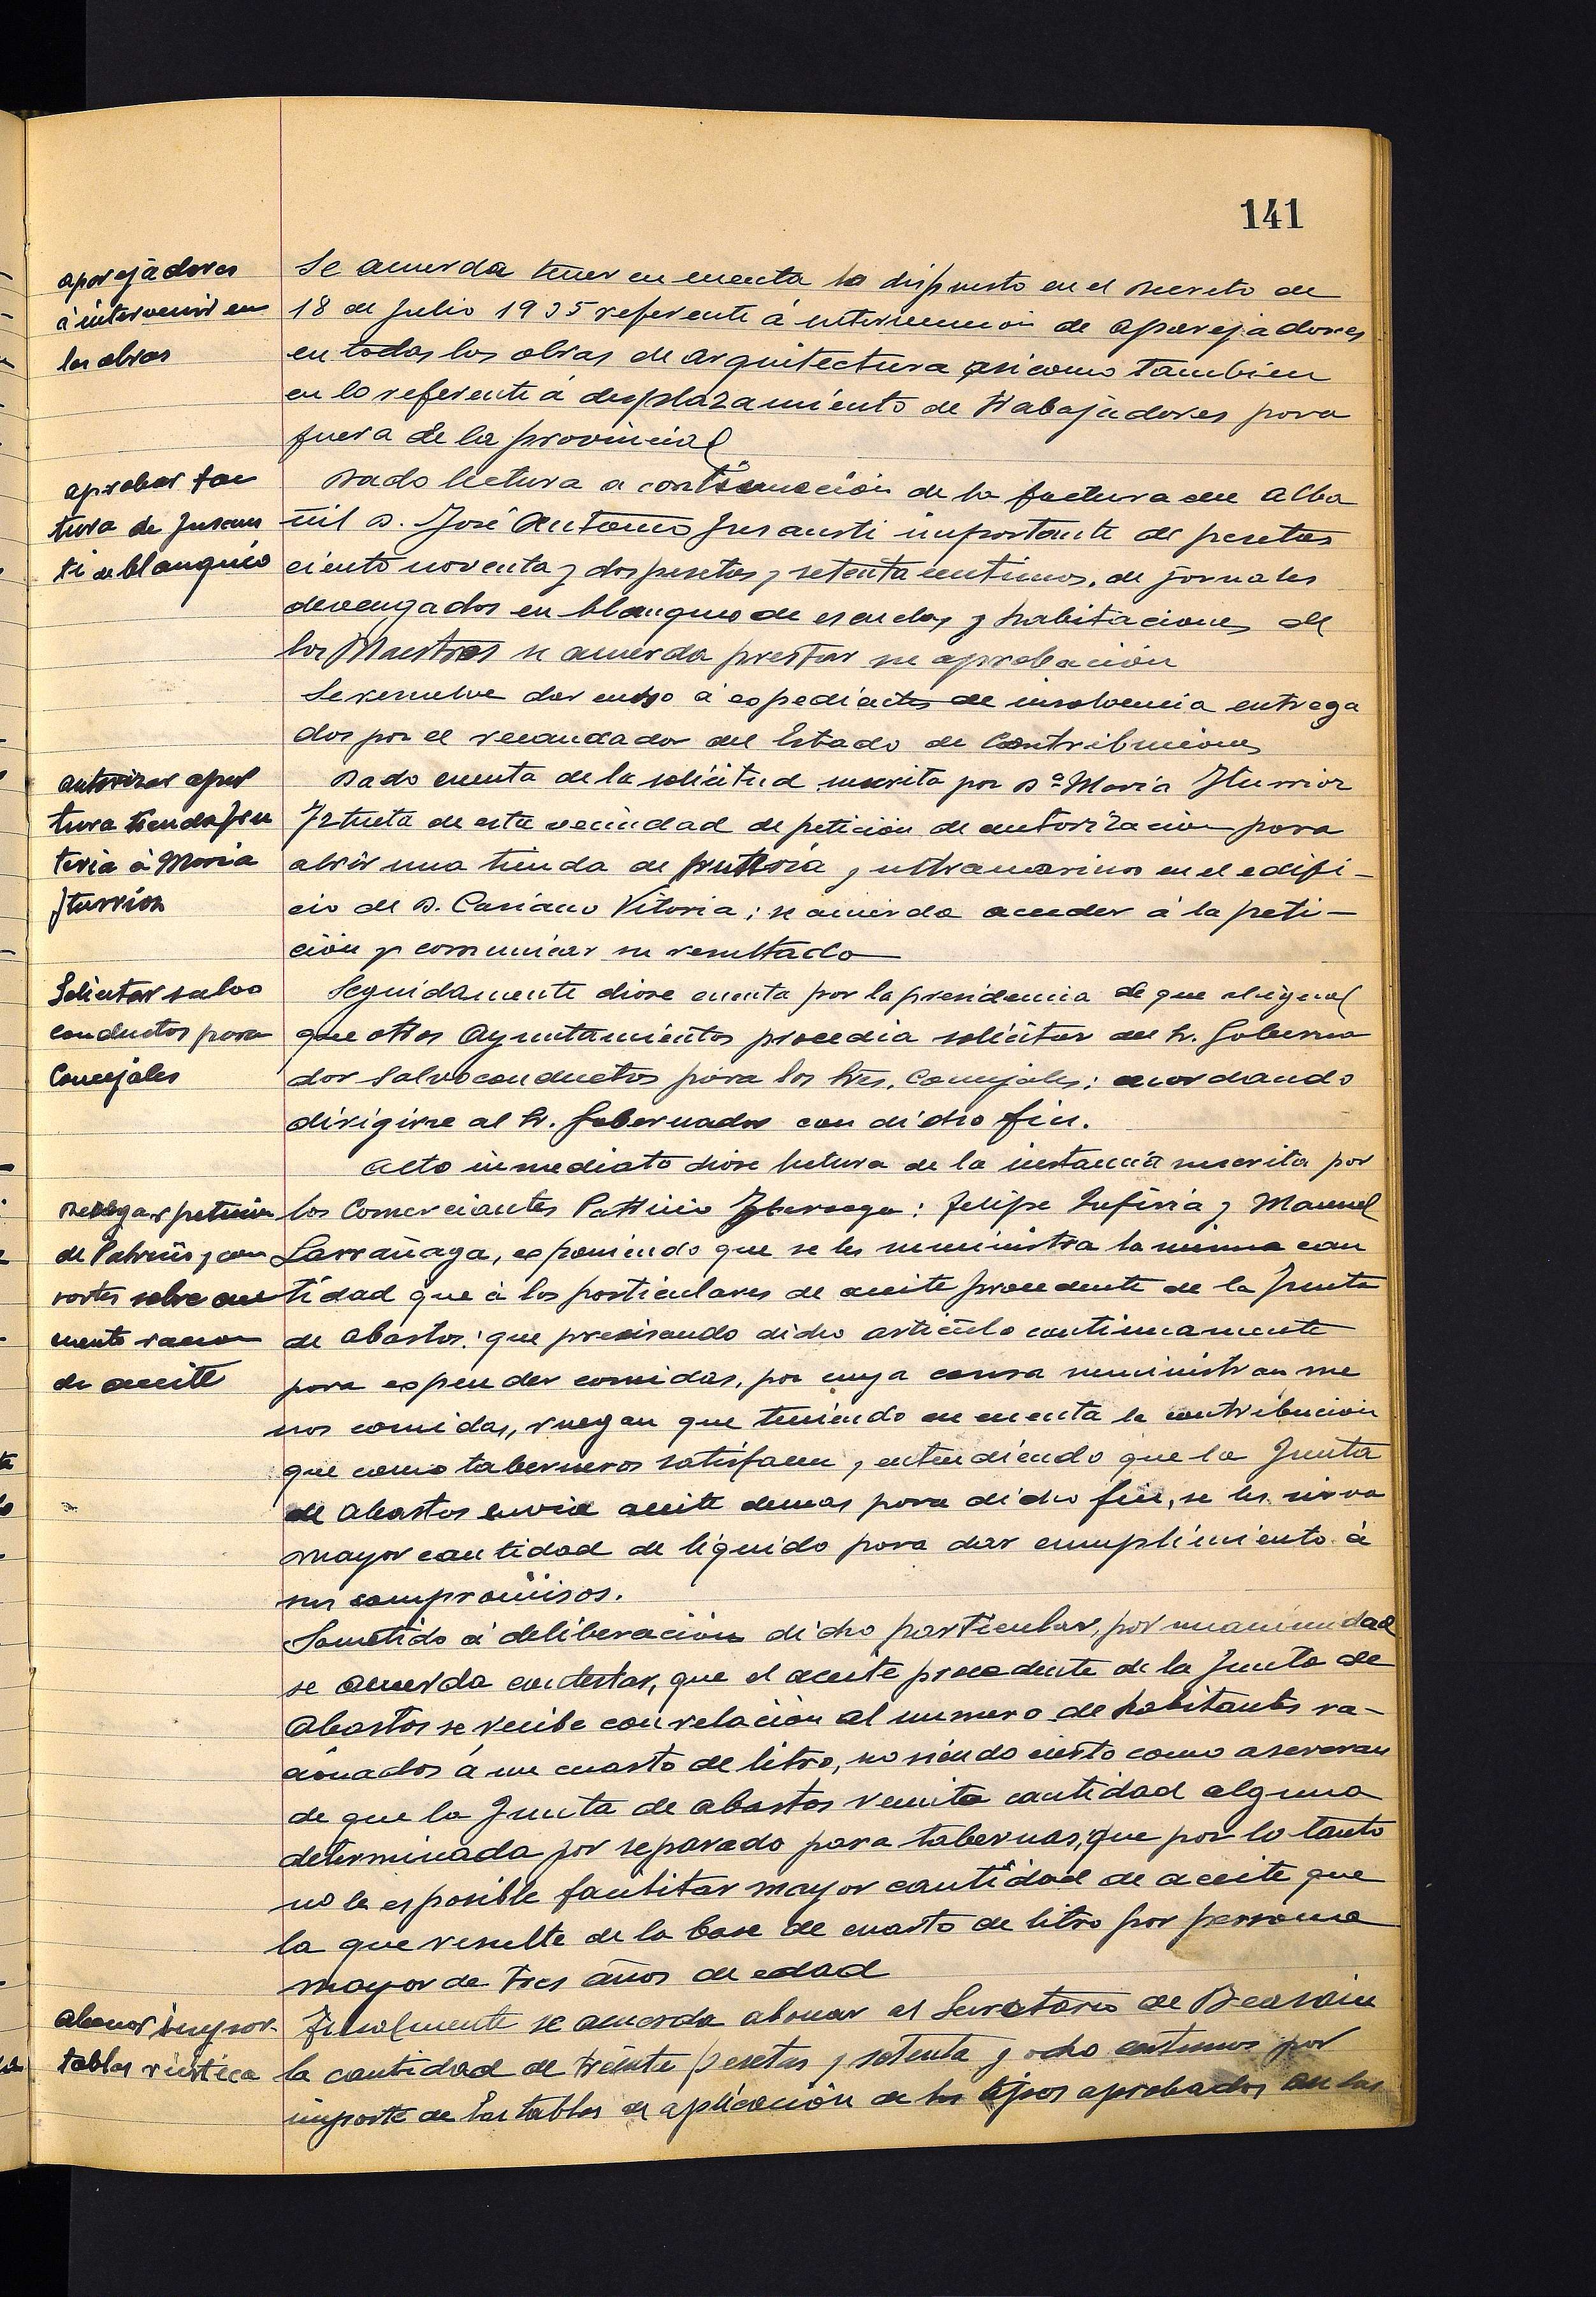 141
aparejadores
á intervenir en
las obras
Se acuerda tener en cuenta lo dispuesto en el Decreto de
18 de Julio 1935 referente á intervención de aparejadores
en todas las obras de arquitectura asi como tambien
en lo referente á desplazamiento de trabajadores para
fuera de la provincial
aprobar fac
tura de Insaus
ti de blanqueo
Dado lectura a continuación de la factura del alba
ñil D. José Antonio Insausti importante de pesetas
ciento noventa y dos pesetas y setenta centimos, de jornales
devengados en blanqueo de escuelas y habitaciones de
los Maestros se acuerda prestar su aprobación
Se resuelve dar curso á expedientes de insolvencia entrega
dos por el recaudador del Estado de Contribuciones
autorizar aper
tura tienda fru
teria á Maria
Iturrioz
Dado cuenta de la solicitud suscrita por Dª Maria Iturrioz
Iztueta de esta vecindad de petición de autorización para
abrir una tienda de frutería y ultramarinos en el edifi-
cio de D. Casiano Vitoria; se acuerda acceder á la peti-
ción y comunicar su resultado
Solicitar salvo
conductos para
Concejales
Seguidamente diose cuenta por la presidencia de que al igual
que otros Ayuntamientos procedia solicitar del Sr. Goberna
dor Salvoconductos para los Sres. Concejales; acordando
dirigirse al Sr. Gobernador con dicho fin.
Acto inmediato diose lectura de la instancia suscrita por
Denegar peticion
de Patricio y con
sortes sobre au
mento racion
de aceite
los Comerciantes Patricio : Felipe y Manuel
Larrañaga, exponiendo que se les suministra la misma can
tidad que á los particulares de aceite procedente de la Junta
de Abastos: que precisando dicho articulo continuamente
para expender comidas, por cuya causa suministran me
nos comidas, ruegan que teniendo en cuenta la contribución
que como taberneros satisfacen y entendiendo que la Junta
de Abastos envia aceite demas para dicho fin, se les sirva
mayor cantidad de liquido para dar cumplimiento á
sus compromisos.
Sometido á deliberación dicho particular, por unanimidad
se acuerda contestar, que el aceite procedente de la Junta de
Abastos se recibe con relación al numero de habitantes ra-
cionados á un cuarto de litro, no siendo cierto como aseveran
de que la Junta de Abastos remita cantidad alguna
determinada por separado para tabernas, que por lo tanto
no le es posible facilitar mayor cantidad de aceite que
la que resulte de la base de cuarto de litro por persona
mayor de tres años de edad
abonar impor.
tablas rústica
Finalmente se acuerda abonar al Secretario de Beasain
la cantidad de treinte pesetas y setenta y ocho centimos por
importe de las tablas de aplicación de los tipos aprobados en las